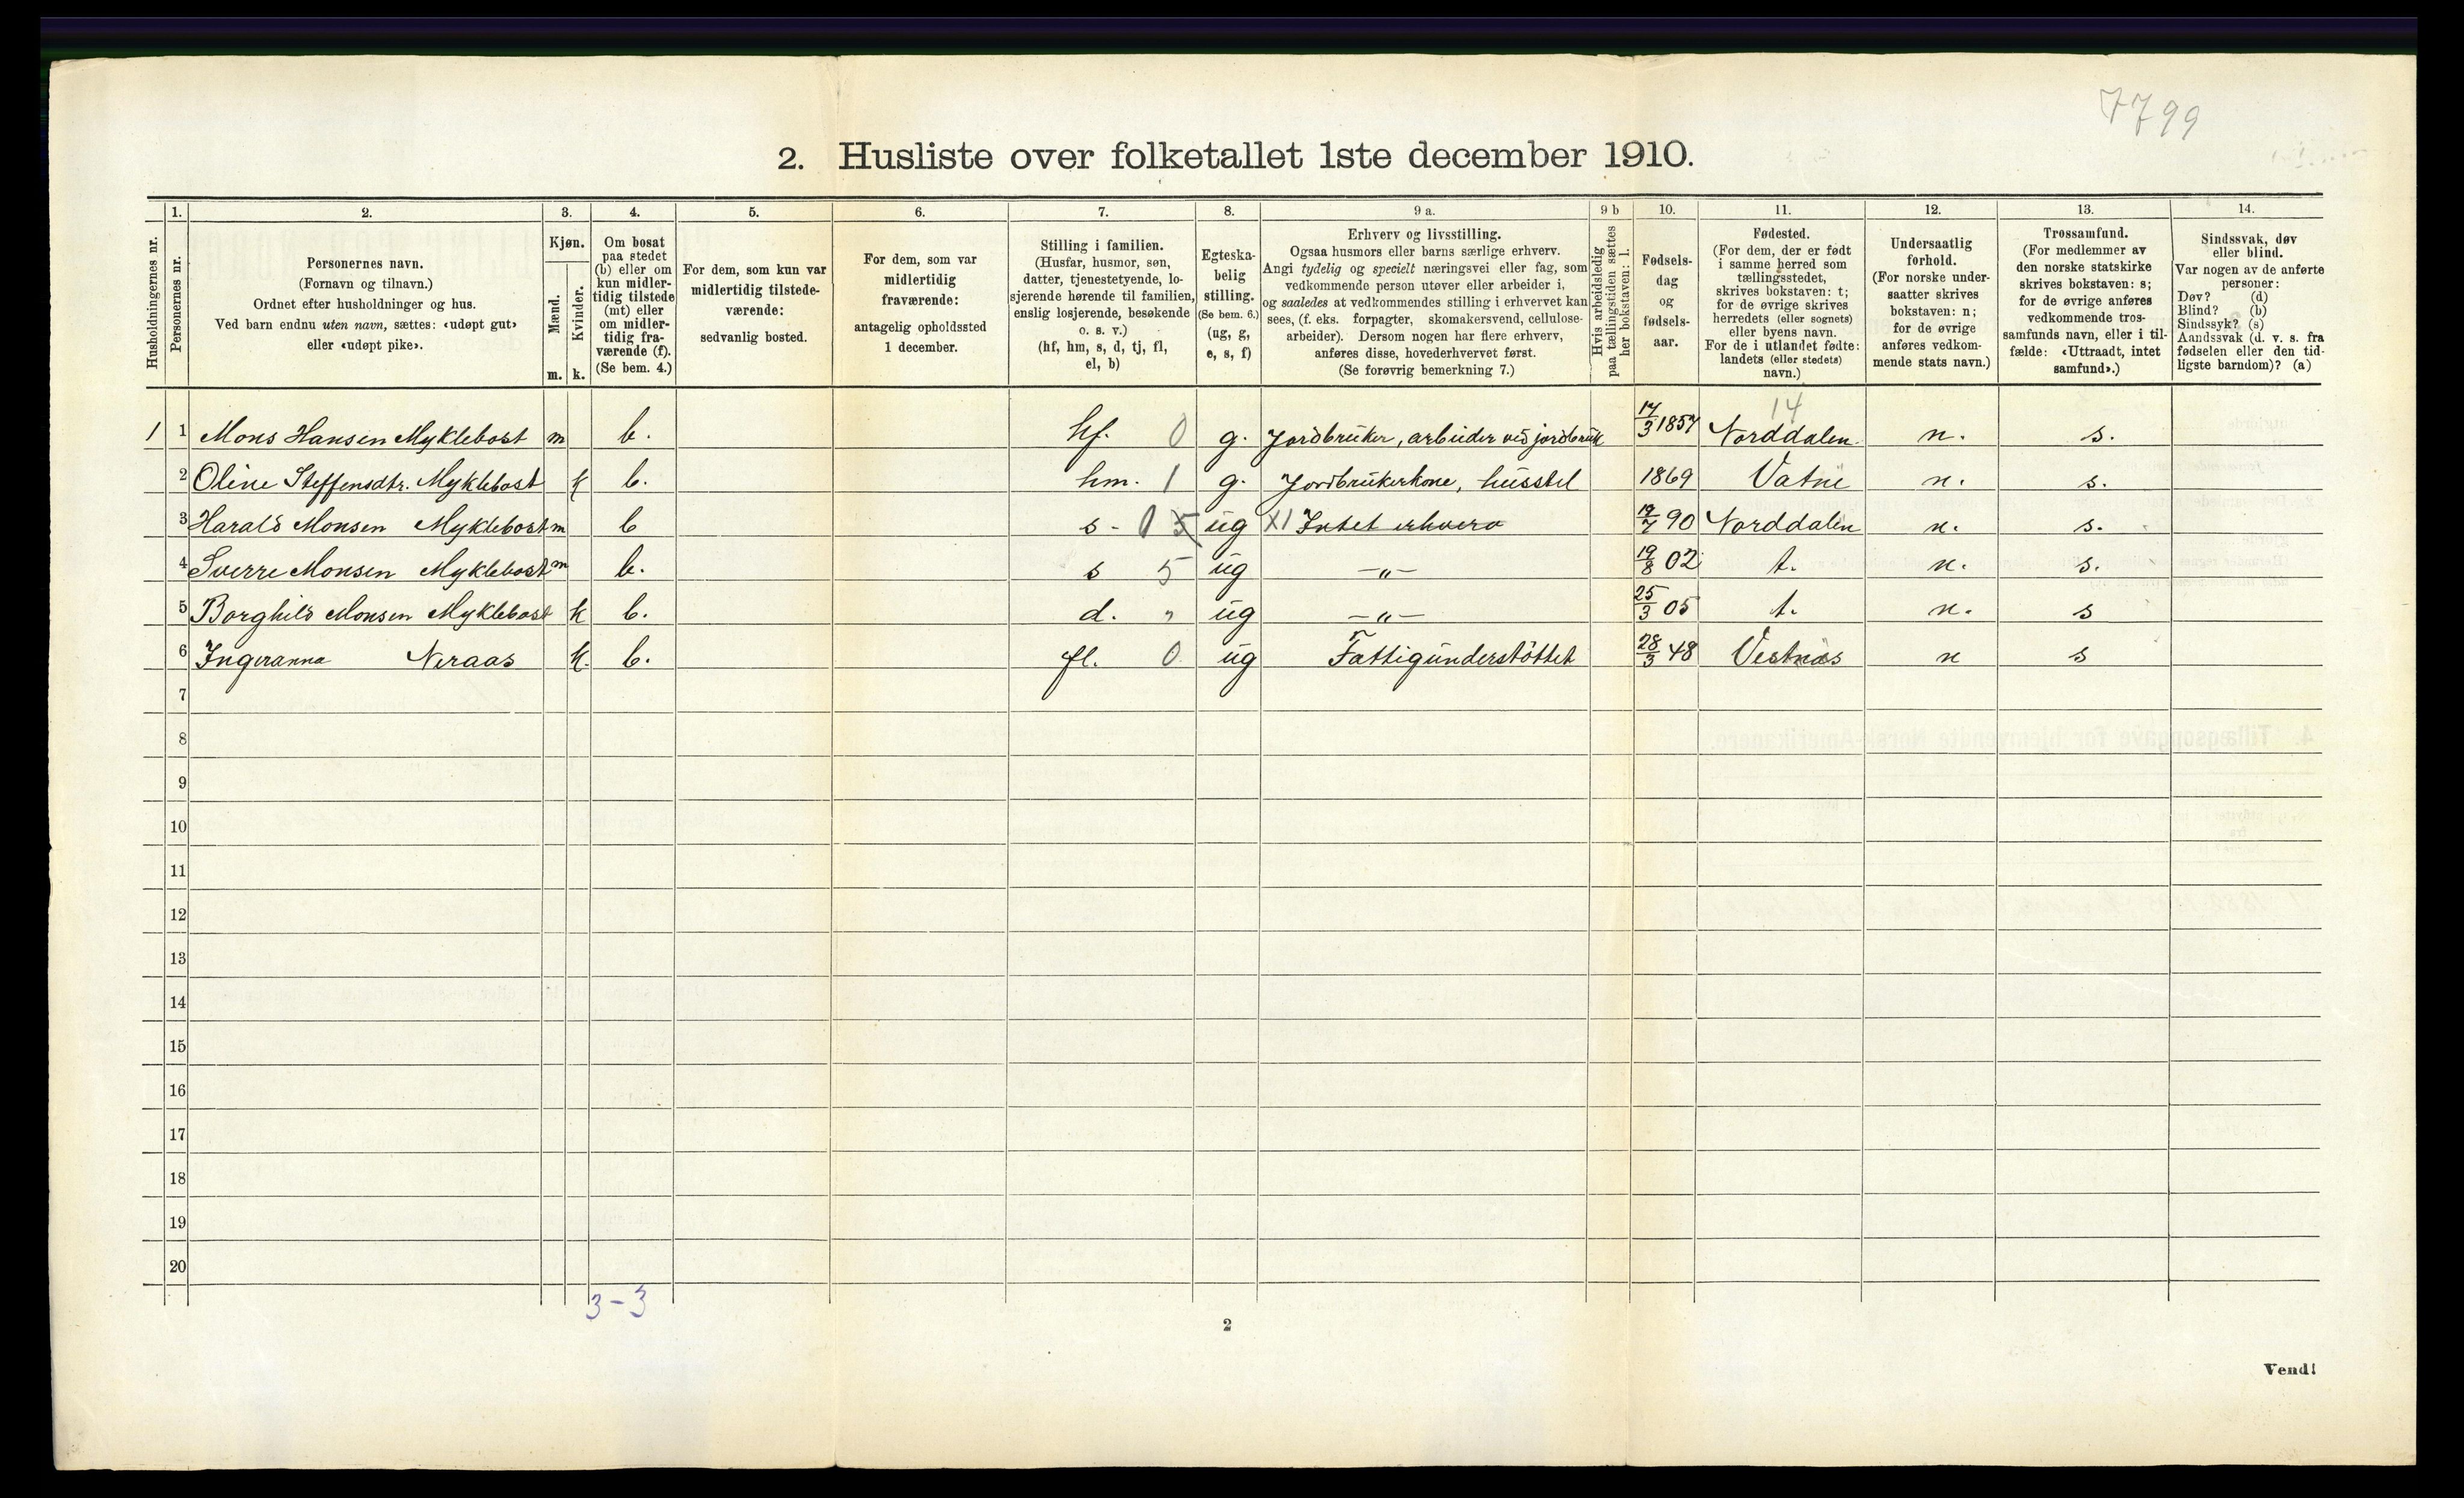 7799
2. Husliste over folketallet 1ste december 1910.
1. 2. 3. 4. 5. 6. 7. 8. 9 a. 9 b 10. 11. 12. 13. 14.
Husholdningernes nr.
Personernes nr.
Personernes navn.
(Fornavn og tilnavn.)
Ordnet efter husholdninger og hus.
Ved barn endnu uten navn, sættes: «udøpt gut»
eller «udøpt pike».
Kjøn.
Mænd.
Kvinder.
m. k.
Om bosat
paa stedet
(b) eller om
kun midler-
tidig tilstede
(mt) eller
om midler-
tidig fra-
værende (f).
(Se bem. 4.)
For dem, som kun var
midlertidig tilstede-
værende:
sedvanlig bosted.
For dem, som var
midlertidig
fraværende:
antagelig opholdssted
1 december.
Stilling i familien.
(Husfar, husmor, søn,
datter, tjenestetyende, lo-
sjerende hørende til familien,
enslig losjerende, besøkende
o. s. v.)
(hf, hm, s, d, tj, fl,
el, b)
Egteska-
belig
stilling.
(Se bem. 6.)
(ug, g,
e, s, f)
Erhverv og livsstilling.
Ogsaa husmors eller barns særlige erhverv.
Angi tydelig og specielt næringsvei eller fag, som
vedkommende person utøver eller arbeider i,
og saaledes at vedkommendes stilling i erhvervet kan
sees, (f. eks. forpagter, skomakersvend, cellulose-
arbeider). Dersom nogen har flere erhverv,
anføres disse, hovederhvervet først.
(Se forøvrig bemerkning 7.)
Hvis arbeidsledig
paa tællingstiden sættes
her bokstaven: l.
Fødsels-
dag
og
fødsels-
aar.
Fødested.
(For dem, der er født
i samme herred som
tællingsstedet,
skrives bokstaven: t;
for de øvrige skrives
herredets (eller sognets)
eller byens navn.
For de i utlandet fødte:
landets (eller stedets)
navn.)
Undersaatlig
forhold.
(For norske under-
saatter skrives
bokstaven: n;
for de øvrige
anføres vedkom-
mende stats navn.)
Trossamfund.
(For medlemmer av
den norske statskirke
skrives bokstaven: s;
for de øvrige anføres
vedkommende tros-
samfunds navn, eller i til-
fælde: «Uttraadt, intet
samfund».)
Sindssvak, døv
eller blind.
Var nogen av de anførte
personer:
Døv? (d)
Blind? (b)
Sindssyk? (s)
Aandssvak (d. v. s. fra
fødselen eller den tid-
ligste barndom)? (a)
14
1 1 Mons Hansen Myklebost m b. hf. 0 g. Jordbruker, arbeider ved jordbruk 17/3 1857 Norddalen. n. s.
2 Oline Steffensdtr. Myklebost k b. hm. 1 g. Jordbrukerkone, husstel 1869 Vatne n. s.
3 Harald Monsen Myklebost m b s - 0 5 ug X1 Intet erhverv 19/7 90 Norddalen n. s.
4 Sverre Monsen Myklebost m b. s 5 ug -"- 19/8 02 t. n. s.
5 Borghild Monsen Myklebost k b. d. " ug -"- 25/3 05 t. n. s
6 Ingeranna Neraas k. b. fl. 0 ug Fattigunderstöttet 28/3 48 Vestnäs n s
7
8
9
10
11
12
13
14
15
16
17
18
19
20
3-3
2
Vend!